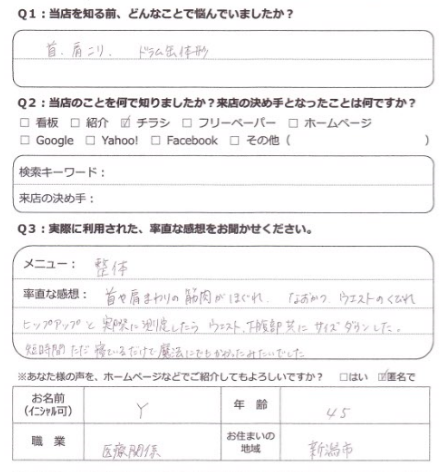 Q1：当店を知る前、どんなことで悩んでいましたか？
首、肩こり、 ドラム缶体形
Q2：当店のことを何で知りましたか？来店の決め手となったことは何ですか？
□ 看板 □ 紹介 ☑ チラシ □ フリーペーパー □ ホームページ
□ Google □ Yahoo! □ Facebook □ その他（ ）
検索キーワード：
来店の決め手：
Q3：実際に利用された、率直な感想をお聞かせください。
メニュー： 整体
率直な感想： 首や肩まわりの筋肉がほぐれ、なおかつ、ウエストのくびれ
ヒップアップと実際に測定したらウエスト、下腹部共にサイズダウンした。
短時間ただ寝ているだけで魔法にでもかかったみたいでした
※あなた様の声を、ホームページなどでご紹介してもよろしいですか？ □はい ☑匿名で
お名前（イニシャル可） Y 年 齢 45
職 業 医療関係 お住まいの地域 新潟市